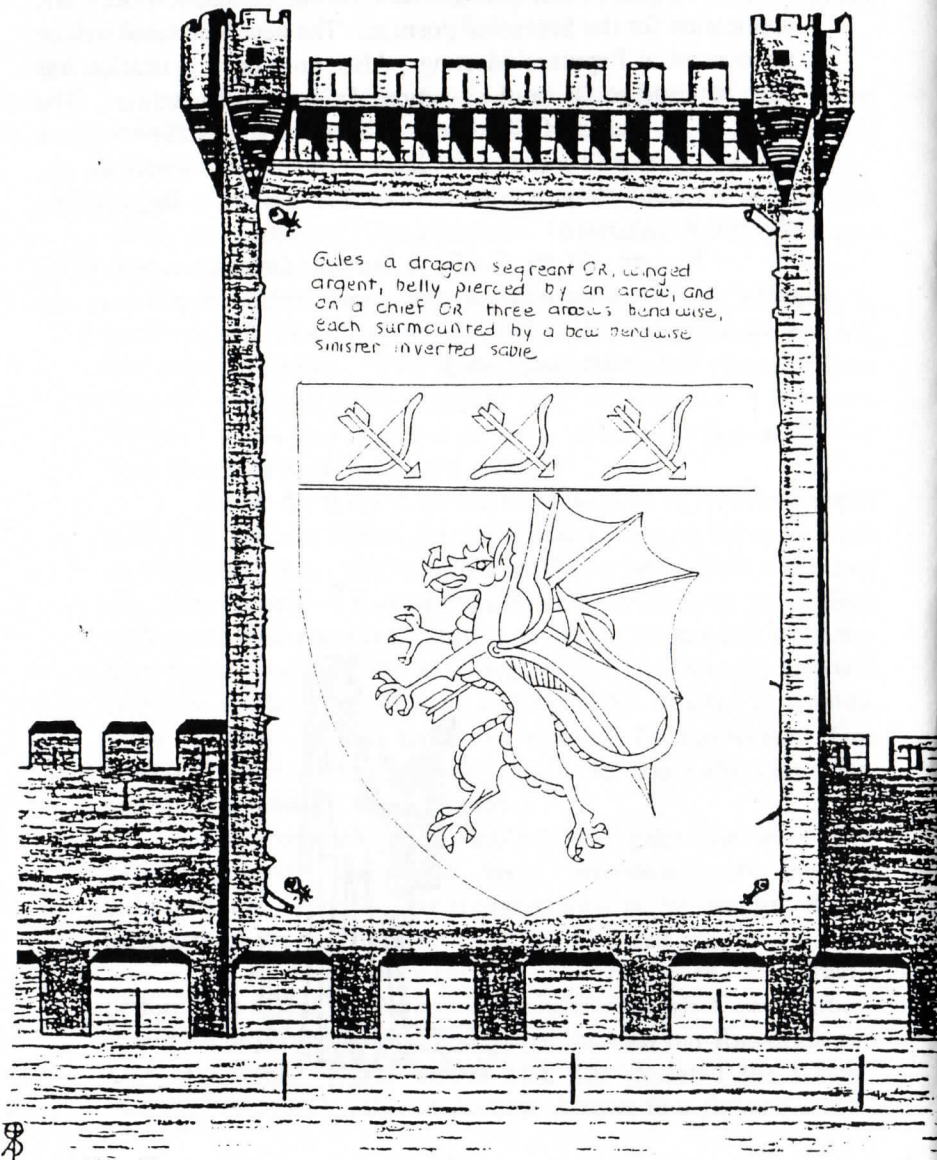 Gules a dragon segreant OR, winged
argent, belly pierced by an arrow, and
on a chief OR three arrows bendwise,
each surmounted by a bow bendwise
sinister inverted sable